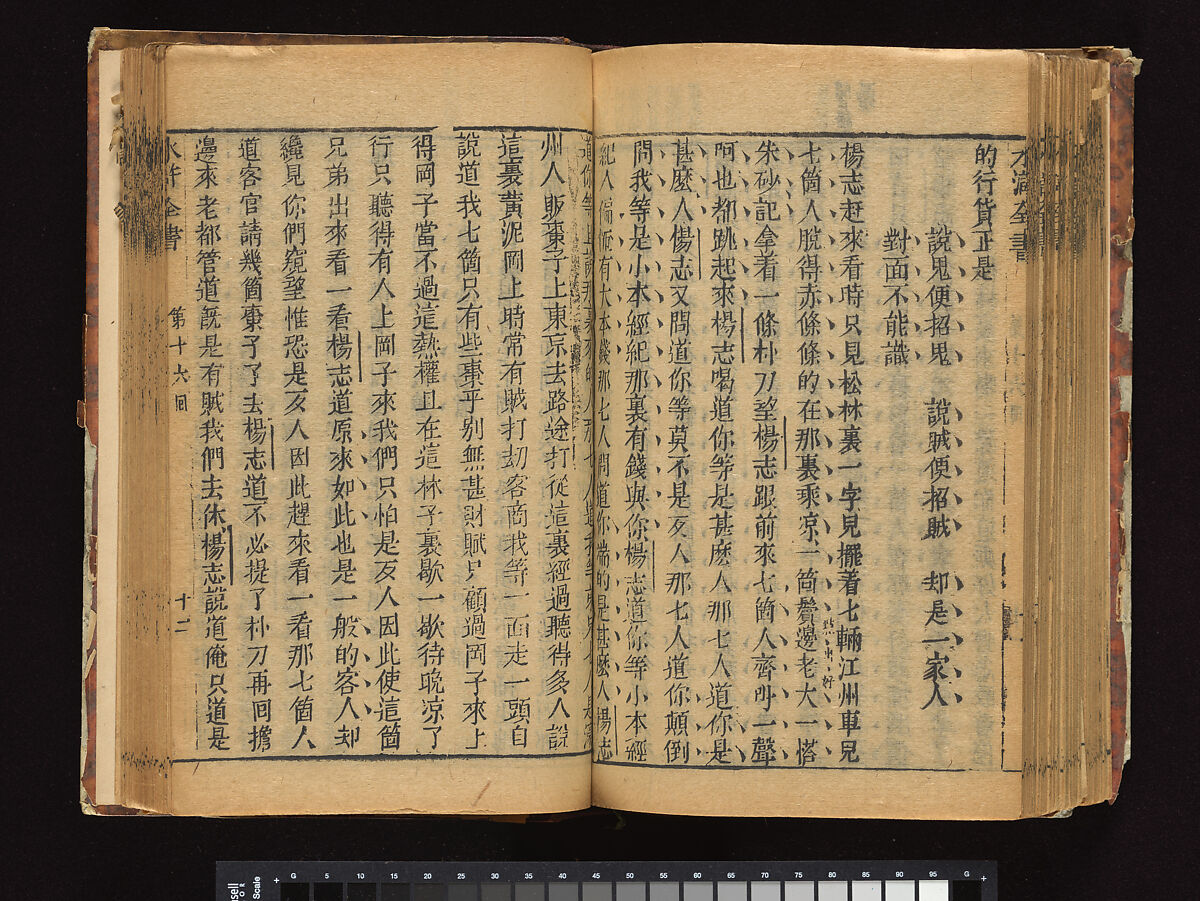 水滸全書
的行貨正是
說鬼便招鬼 說賊便招賊 却是一家人
對面不能識
楊志赶來看時只見松林裏一字兒擺着七輛江州車兒
七箇人脫得赤條條的在那裏乘凉一箇鬢邊老大一搭
點出好
朱砂記拿着一條朴刀望楊志跟前來七箇人齊叫一聲
阿也都跳起來楊志喝道你等是甚麽人那七人道你是
甚麽人楊志又問道你等莫不是歹人那七人道你顛倒
問我等是小本經紀那裏有錢與你楊志道你等小本經
紀人偏俺有大本錢那七人問道你端的是甚麽人楊志
道你等且說那裏來的人那七人道我等
州人販棗子上東京去路途打從這裏經過聽得多人說
這裏黃泥岡上時常有賊打刼客商我等一面走一頭自
說道我七箇只有些棗子别無甚財賦只顧過岡子來上
得岡子當不過這熱權且在這林子裏歇一歇待晚凉了
行只聽得有人上岡子來我們只怕是歹人因此使這箇
兄弟出來看一看楊志道原來如此也是一般的客人却
纔見你們窺望惟恐是歹人因此趕來看一看那七箇人
道客官請幾箇棗子了去楊志道不必提了朴刀再回擔
邊來老都管道旣是有賊我們去休楊志說道俺只道是
水滸全書 第十六回 十二